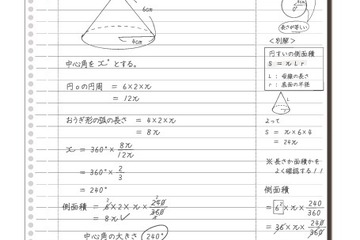 6cm
4cm
中心角を x° とする。
円Oの円周 = 6×2×π
= 12π
おうぎ形の弧の長さ = 4×2×π
= 8π
x = 360°× 8π/12π
= 360°× 2/3
= 240°
側面積 = 6×2×π×240/360
= 8π
中心角の大きさ 240°
6cm
長さが等しい
<別解>
円すいの側面積
S = πLr
L : 母線の長さ
r : 底面の半径
よって
S = π×6×4
= 24π
※長さか面積かを
よく確認する!!
側面積
= 6²×π×240/360
= 36×π×240/360